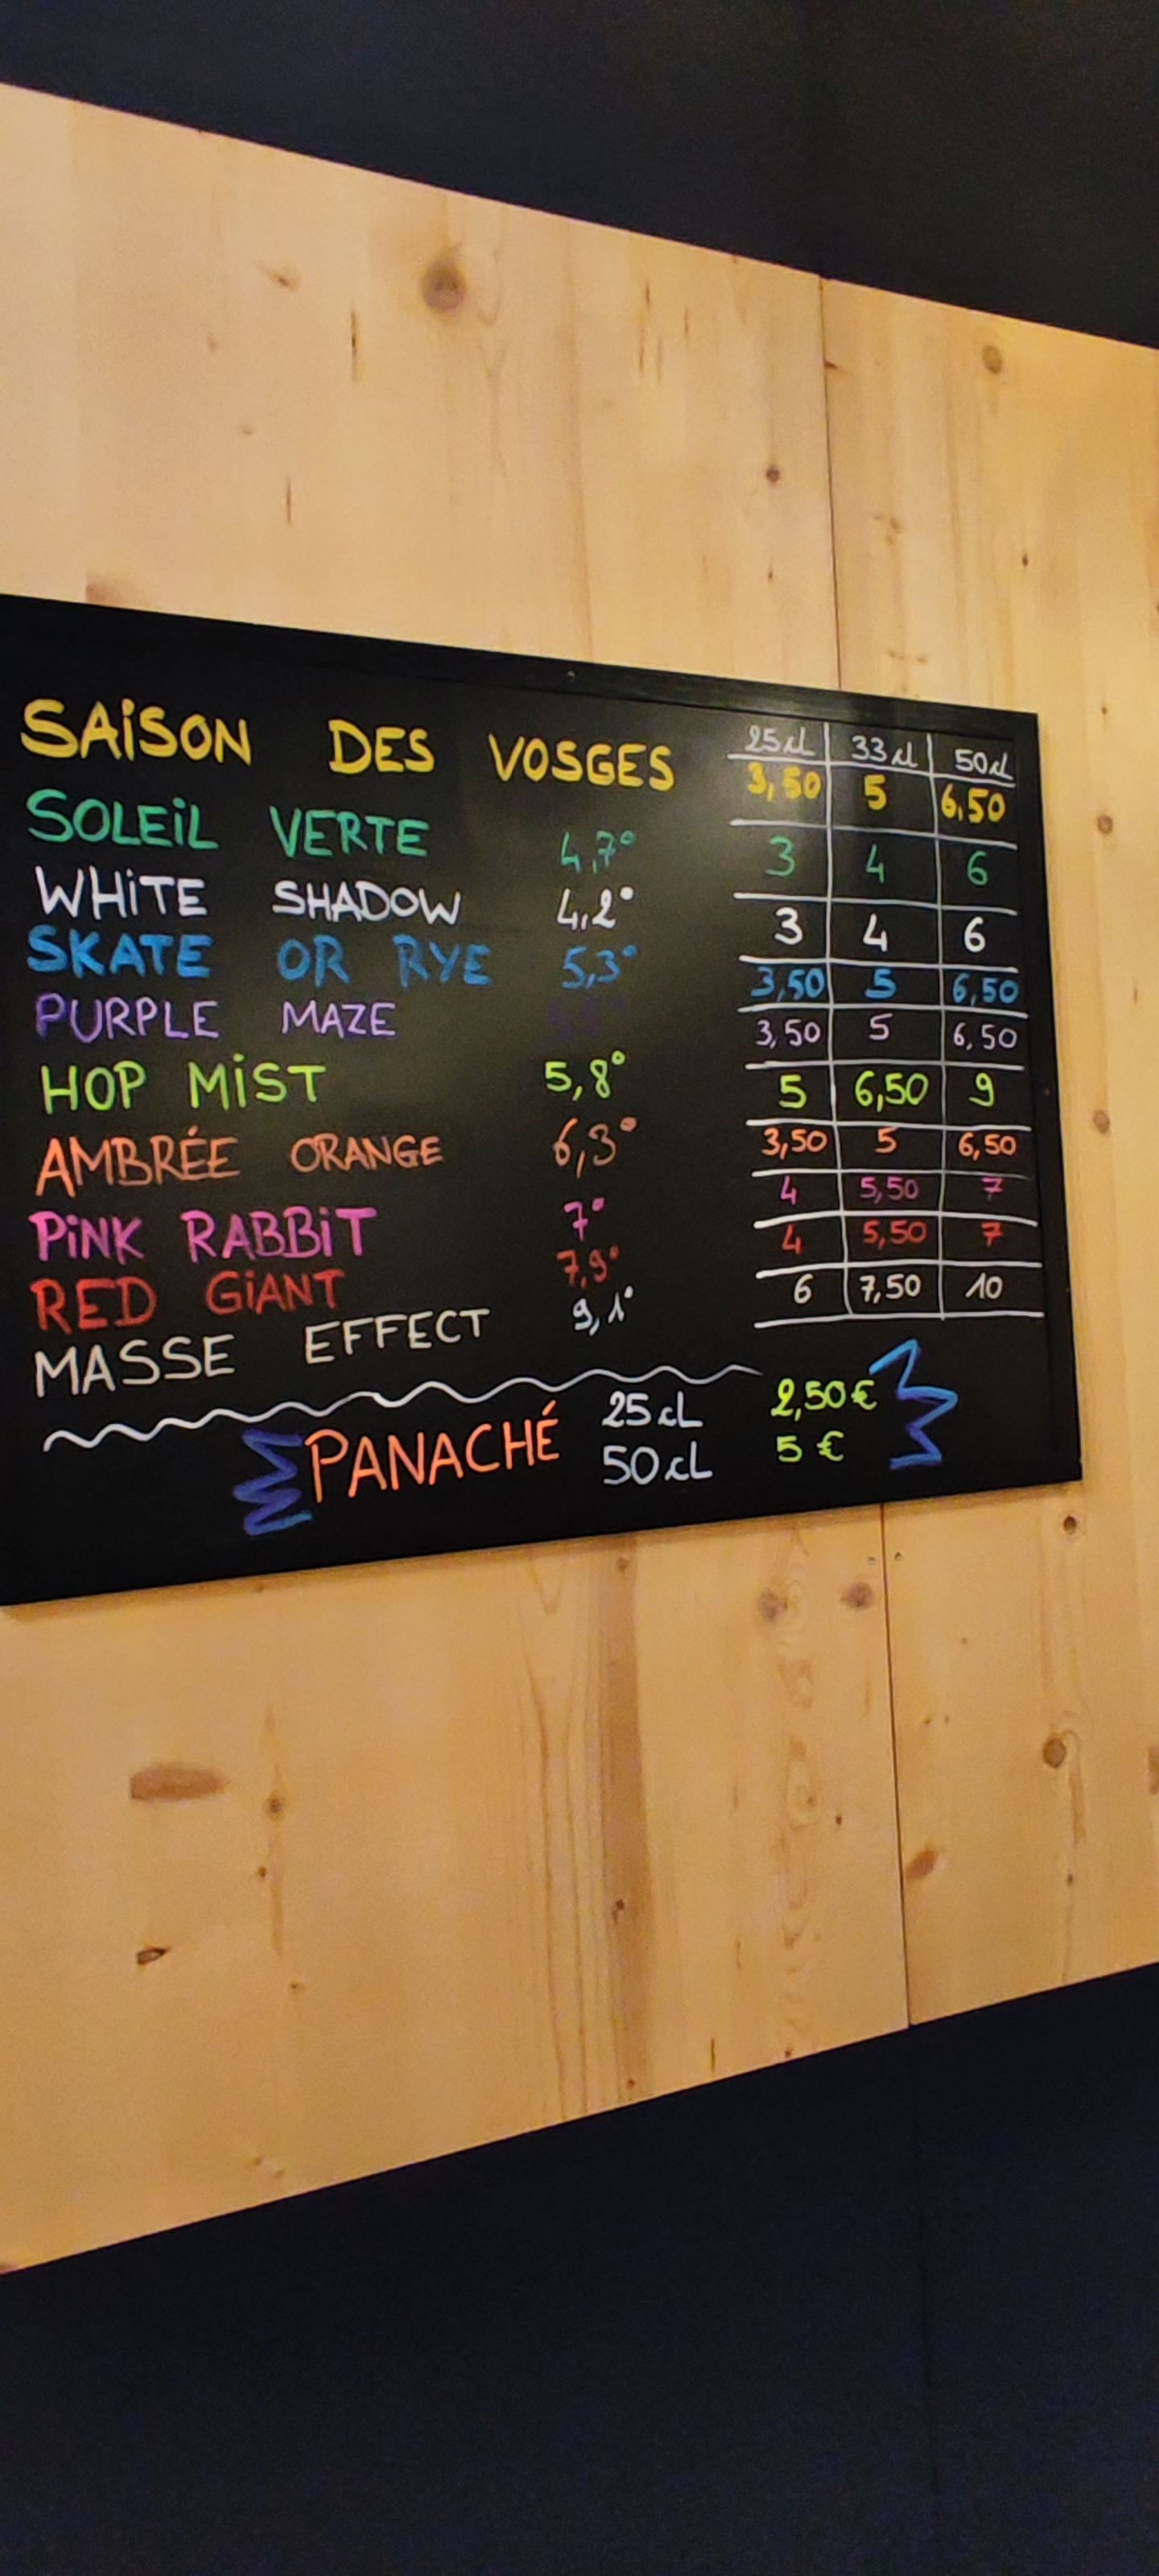 25cl 33cl 50cl
SAiSON DES VOSGES 3,50 5 6,50
SOLEiL VERTE 4,7° 3 4 6
WHiTE SHADOW 4,2° 3 4 6
SKATE OR RYE 5,3° 3,50 5 6,50
PURPLE MAZE 3,50 5 6,50
HOP MiST 5,8° 5 6,50 9
AMBRÉE ORANGE 6,3° 3,50 5 6,50
PiNK RABBiT 7° 4 5,50 7
RED GiANT 7,9° 4 5,50 7
MASSE EFFECT 9,1° 6 7,50 10
PANACHÉ 25cL 2,50€
50cL 5 €